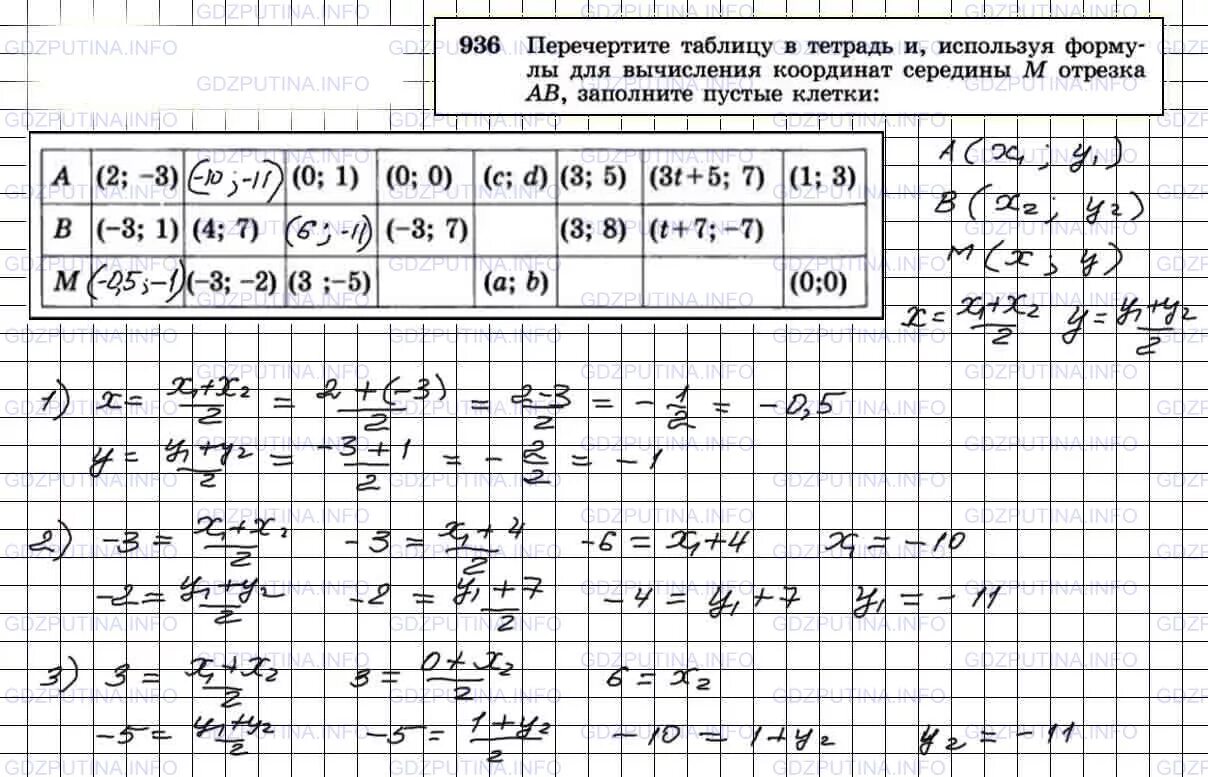 936 Перечертите таблицу в тетрадь и, используя форму-
лы для вычисления координат середины M отрезка
AB, заполните пустые клетки:
A (2; −3) (-10 ; -11) (0; 1) (0; 0) (c; d) (3; 5) (3t+5; 7) (1; 3)
B (−3; 1) (4; 7) (6 ; -11) (−3; 7) (3; 8) (t+7; −7)
M (-0,5 ; -1) (−3; −2) (3 ;−5) (a; b) (0;0)
A (x₁ ; y₁)
B (x₂ ; y₂)
M (x ; y)
x = (x₁+x₂)/2 y = (y₁+y₂)/2
1) x = (x₁+x₂)/2 = (2+(-3))/2 = (2-3)/2 = -1/2 = -0,5
y = (y₁+y₂)/2 = (-3+1)/2 = -2/2 = -1
2) -3 = (x₁+x₂)/2 -3 = (x₁+4)/2 -6 = x₁+4 x₁ = -10
-2 = (y₁+y₂)/2 -2 = (y₁+7)/2 -4 = y₁+7 y₁ = -11
3) 3 = (x₁+x₂)/2 3 = (0+x₂)/2 6 = x₂
-5 = (y₁+y₂)/2 -5 = (1+y₂)/2 -10 = 1+y₂ y₂ = -11
GDZPUTINA.INFO